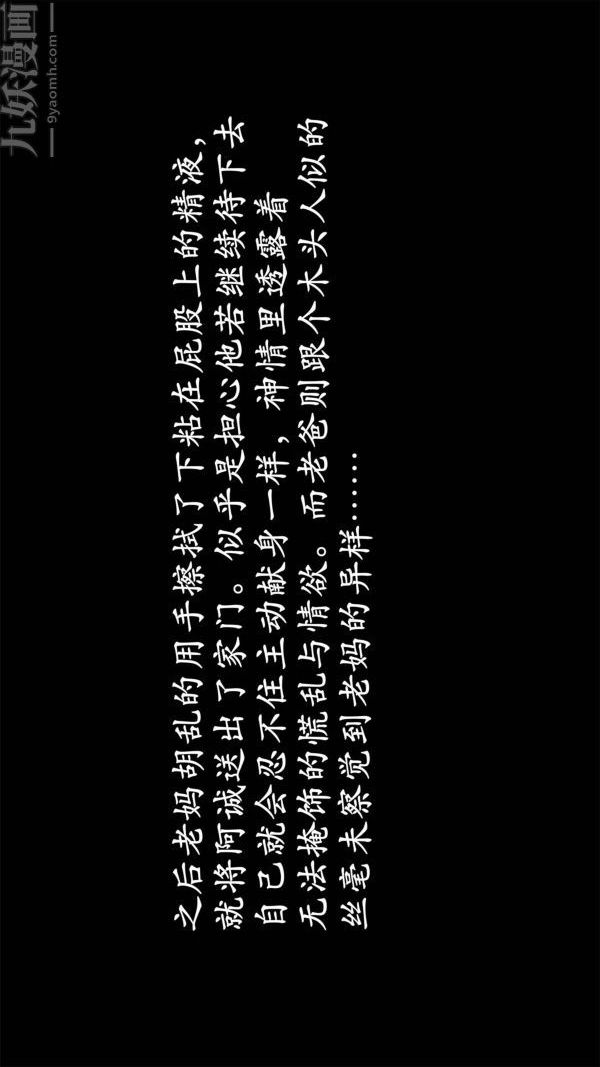 九妖漫画
9yaomh.com
之后老妈胡乱的用手擦拭了下粘在屁股上的精液，
就将阿诚送出了家门。似乎是担心他若继续待下去
自己就会忍不住主动献身一样，神情里透露着
无法掩饰的慌乱与情欲。而老爸则跟个木头人似的
丝毫未察觉到老妈的异样……